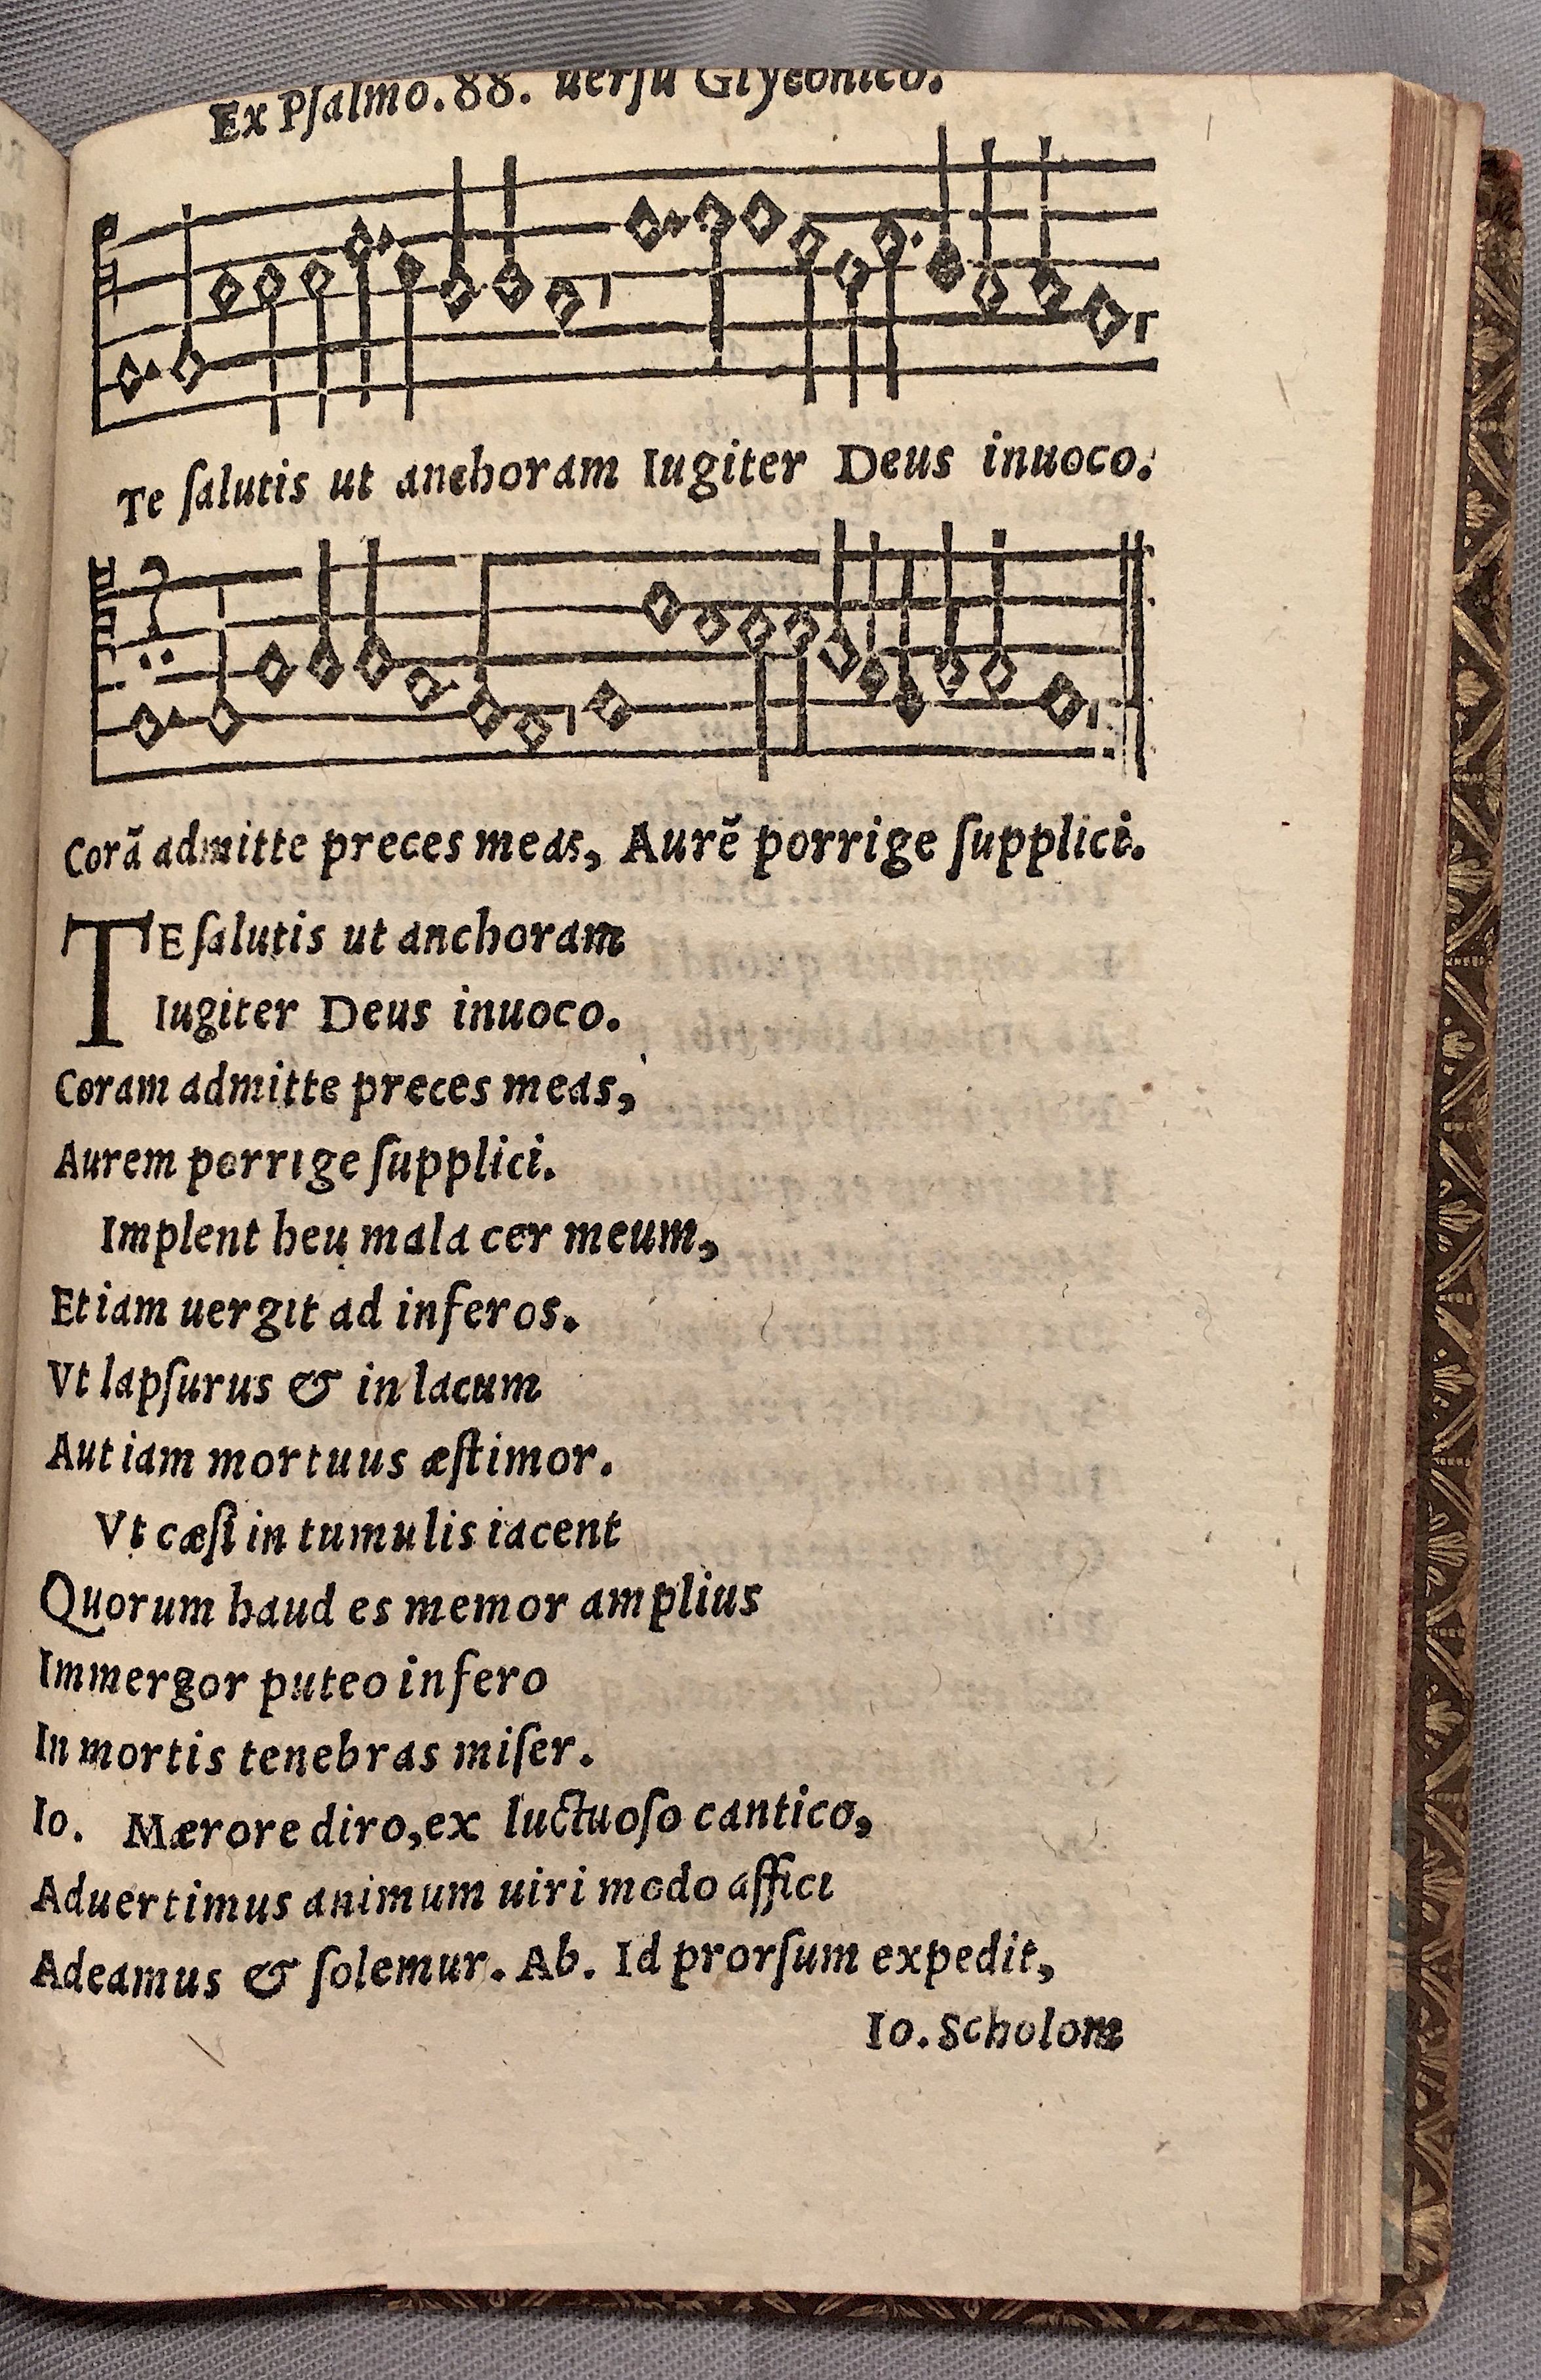 Ex Psalmo. 88. uersu Glyconico.
Te ſalutis ut anchoram Iugiter Deus inuoco.
Corã admitte preces meas, Aurẽ porrige ſupplici.
TE ſalutis ut anchoram
Iugiter Deus inuoco.
Coram admitte preces meas,
Aurem porrige ſupplici.
Implent heu mala cor meum,
Et iam uergit ad inferos.
Vt lapſurus & in lacum
Aut iam mortuus æſtimor.
Vt cæſi in tumulis iacent
Quorum haud es memor amplius
Immergor puteo infero
In mortis tenebras miſer.
Io. Mærore diro, ex luctuoſo cantico,
Aduertimus animum uiri modo affici
Adeamus & ſolemur. Ab. Id prorſum expedit,
Io. Scholom